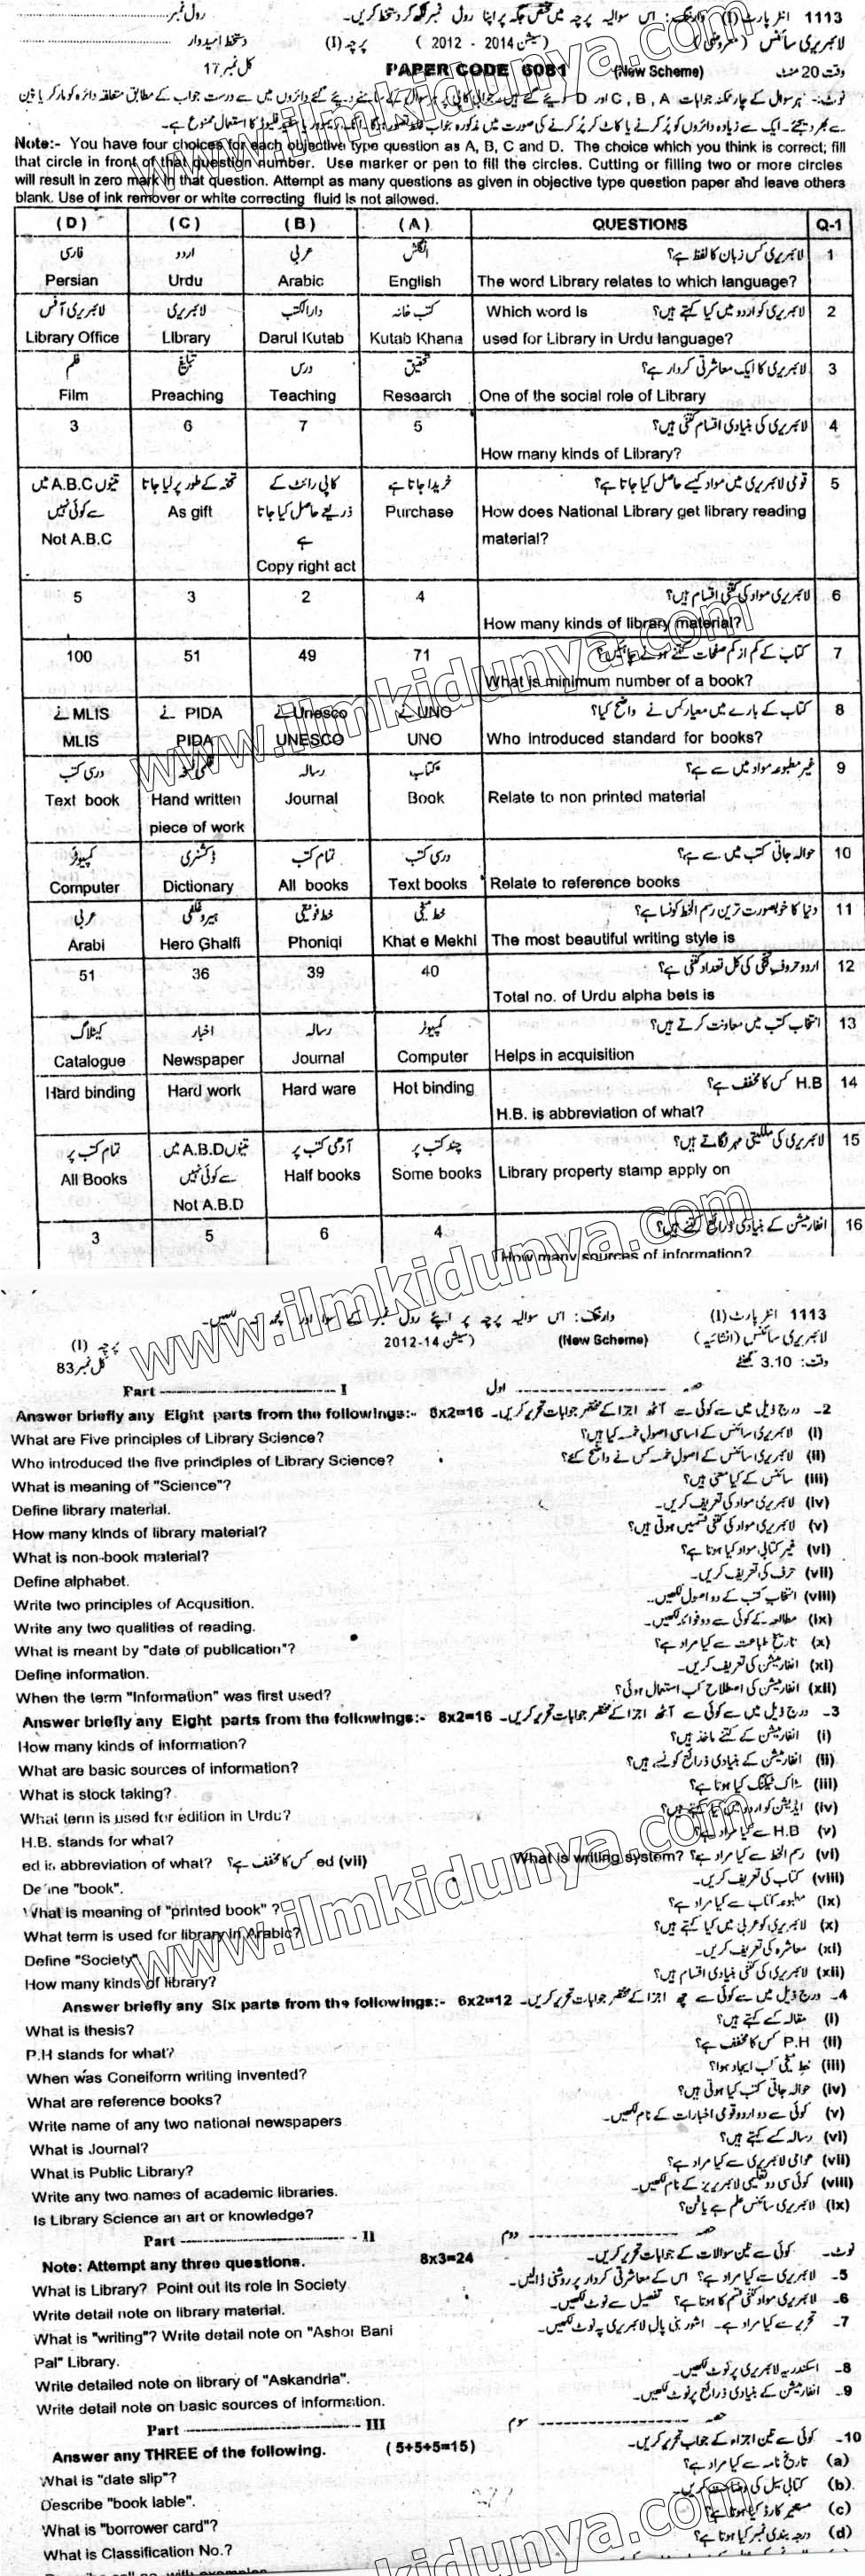 1113 انٹر پارٹ (I) وارننگ: اس سوالیہ پرچہ میں مختص جگہ پر اپنا رول نمبر لکھ کر دستخط کریں۔ رول نمبر
لائبریری سائنس (معروضی) (سیشن 2014 - 2012) پرچہ (I) دستخط امیدوار
وقت 20 منٹ (New Scheme) PAPER CODE 6081 کل نمبر 17
Note:- You have four choices for each objective type question as A, B, C and D. The choice which you think is correct; fill
that circle in front of that question number. Use marker or pen to fill the circles. Cutting or filling two or more circles
will result in zero mark in that question. Attempt as many questions as given in objective type question paper and leave others
blank. Use of ink remover or white correcting fluid is not allowed.
(D) (C) (B) (A) QUESTIONS Q-1
فارسی اردو عربی انگلش لائبریری کس زبان کا لفظ ہے؟ 1
Persian Urdu Arabic English The word Library relates to which language?
لائبریری آفس لائبریری دارالکتب کتب خانہ Which word is لائبریری کو اردو میں کیا کہتے ہیں؟ 2
Library Office Library Darul Kutab Kutab Khana used for Library in Urdu language?
فلم تبلیغ درس تحقیق لائبریری کا ایک معاشرتی کردار ہے؟ 3
Film Preaching Teaching Research One of the social role of Library
3 6 7 5 لائبریری کی بنیادی اقسام کتنی ہیں؟ 4
How many kinds of Library?
تینوں A.B.C میں تحفہ کے طور پر لیا جاتا کاپی رائٹ کے خریدا جاتا ہے قومی لائبریری میں مواد کیسے حاصل کیا جاتا ہے؟ 5
سے کوئی نہیں As gift ذریعے حاصل کیا جاتا Purchase How does National Library get library reading
Not A.B.C ہے material?
Copy right act
5 3 2 4 لائبریری مواد کی کتنی اقسام ہیں؟ 6
How many kinds of library material?
100 51 49 71 کتاب کے کم از کم صفحات کتنے ہونے چاہئیں؟ 7
What is minimum number of a book?
MLIS نے PIDA نے Unesco نے UNO نے کتاب کے بارے میں معیار کس نے واضح کیا؟ 8
MLIS PIDA UNESCO UNO Who introduced standard for books?
درسی کتب قلمی نسخہ رسالہ کتاب غیر مطبوعہ مواد میں سے ہے؟ 9
Text book Hand written Journal Book Relate to non printed material
piece of work
کمپیوٹر ڈکشنری تمام کتب درسی کتب حوالہ جاتی کتب میں سے ہے؟ 10
Computer Dictionary All books Text books Relate to reference books
عربی ہیروغلفی خط فونیقی خط میخی دنیا کا خوبصورت ترین رسم الخط کونسا ہے؟ 11
Arabi Hero Ghalfi Phoniqi Khat e Mekhi The most beautiful writing style is
51 36 39 40 اردو حروف تہجی کی کل تعداد کتنی ہے؟ 12
Total no. of Urdu alpha bets is
کیٹلاگ اخبار رسالہ کمپیوٹر انتخاب کتب میں معاونت کرتے ہیں؟ 13
Catalogue Newspaper Journal Computer Helps in acquisition
Hard binding Hard work Hard ware Hot binding H.B کس کا مخفف ہے؟ 14
H.B. is abbreviation of what?
تمام کتب پر تینوں A.B.D میں آدھی کتب پر چند کتب پر لائبریری کی ملکیتی مہر لگاتے ہیں؟ 15
All Books سے کوئی نہیں Half books Some books Library property stamp apply on
Not A.B.D
3 5 6 4 انفارمیشن کے بنیادی ذرائع کتنے ہیں؟ 16
How many sources of information?
1113 انٹر پارٹ (I) وارننگ: اس سوالیہ پرچہ پر اپنے رول نمبر کے سوا اور کچھ نہ لکھیں۔
لائبریری سائنس (انشائیہ) (New Scheme) (سیشن 14-2012) پرچہ (I)
وقت: 3.10 گھنٹے کل نمبر 83
Part ---------------- I حصہ ---------------- اول
Answer briefly any Eight parts from the followings:- 8x2=16 2- درج ذیل میں سے کوئی سے آٹھ اجزا کے مختصر جوابات تحریر کریں۔
What are Five principles of Library Science? (i) لائبریری سائنس کے اساسی اصول خمسہ کیا ہیں؟
Who introduced the five principles of Library Science? (ii) لائبریری سائنس کے اصول خمسہ کس نے واضح کئے؟
What is meaning of "Science"? (iii) سائنس کے کیا معنی ہیں؟
Define library material. (iv) لائبریری مواد کی تعریف کریں۔
How many kinds of library material? (v) لائبریری مواد کی کتنی قسمیں ہوتی ہیں؟
What is non-book material? (vi) غیر کتابی مواد کیا ہوتا ہے؟
Define alphabet. (vii) حرف کی تعریف کریں۔
Write two principles of Acqusition. (viii) انتخاب کتب کے دو اصول لکھیں۔
Write any two qualities of reading. (ix) مطالعہ کے کوئی سے دو فوائد لکھیں۔
What is meant by "date of publication"? (x) تاریخ طباعت سے کیا مراد ہے؟
Define information. (xi) انفارمیشن کی تعریف کریں۔
When the term "Information" was first used? (xii) انفارمیشن کی اصطلاح کب استعمال ہوئی؟
Answer briefly any Eight parts from the followings:- 8x2=16 3- درج ذیل میں سے کوئی سے آٹھ اجزا کے مختصر جوابات تحریر کریں۔
How many kinds of information? (i) انفارمیشن کے کتنے ماخذ ہیں؟
What are basic sources of information? (ii) انفارمیشن کے بنیادی ذرائع کونسے ہیں؟
What is stock taking? (iii) سٹاک ٹیکنگ کیا ہوتا ہے؟
What term is used for edition in Urdu? (iv) ایڈیشن کو اردو میں کیا کہتے ہیں؟
H.B. stands for what? (v) H.B سے کیا مراد ہے؟
ed is abbreviation of what? ed (vii) کس کا مخفف ہے؟ What is writing system? (vi) رسم الخط سے کیا مراد ہے؟
Define "book". (viii) کتاب کی تعریف کریں۔
What is meaning of "printed book" ? (ix) مطبوعہ کتاب سے کیا مراد ہے؟
What term is used for library in Arabic? (x) لائبریری کو عربی میں کیا کہتے ہیں؟
Define "Society" (xi) معاشرہ کی تعریف کریں۔
How many kinds of library? (xii) لائبریری کی کتنی بنیادی اقسام ہیں؟
Answer briefly any Six parts from the followings:- 6x2=12 4- درج ذیل میں سے کوئی سے چھ اجزا کے مختصر جوابات تحریر کریں۔
What is thesis? (i) مقالہ کسے کہتے ہیں؟
P.H stands for what? (ii) P.H کس کا مخفف ہے؟
When was Coneiform writing invented? (iii) خط میخی کب ایجاد ہوا؟
What are reference books? (iv) حوالہ جاتی کتب کیا ہوتی ہیں؟
Write name of any two national newspapers (v) کوئی سے دو اردو قومی اخبارات کے نام لکھیں۔
What is Journal? (vi) رسالہ کسے کہتے ہیں؟
What is Public Library? (vii) عوامی لائبریری سے کیا مراد ہے؟
Write any two names of academic libraries. (viii) کوئی سی دو تعلیمی لائبریریز کے نام لکھیں۔
Is Library Science an art or knowledge? (ix) لائبریری سائنس علم ہے یا فن؟
Part ---------------- II حصہ ---------------- دوم
Note: Attempt any three questions. 8x3=24 نوٹ۔ کوئی سے تین سوالات کے جوابات تحریر کریں۔
What is Library? Point out its role in Society 5- لائبریری سے کیا مراد ہے؟ اس کے معاشرتی کردار پر روشنی ڈالیں۔
Write detail note on library material. 6- لائبریری مواد کتنی قسم کا ہوتا ہے؟ تفصیل سے نوٹ لکھیں۔
What is "writing"? Write detail note on "Ashor Bani 7- تحریر سے کیا مراد ہے۔ اشور بنی پال لائبریری پہ نوٹ لکھیں۔
Pal" Library.
Write detailed note on library of "Askandria". 8- اسکندریہ لائبریری پر نوٹ لکھیں۔
Write detail note on basic sources of information. 9- انفارمیشن کے بنیادی ذرائع پر نوٹ لکھیں۔
Part ---------------- III حصہ ---------------- سوم
Answer any THREE of the following. (5+5+5=15) 10- کوئی سے تین اجزاء کے جواب تحریر کریں۔
What is "date slip"? (a) تاریخ نامہ سے کیا مراد ہے؟
Describe "book lable". (b) کتابی لیبل کی وضاحت کریں۔
What is "borrower card"? (c) مستعیر کارڈ کیا ہوتا ہے؟
What is Classification No.? (d) درجہ بندی نمبر کیا ہوتا ہے؟
www.ilmkidunya.com